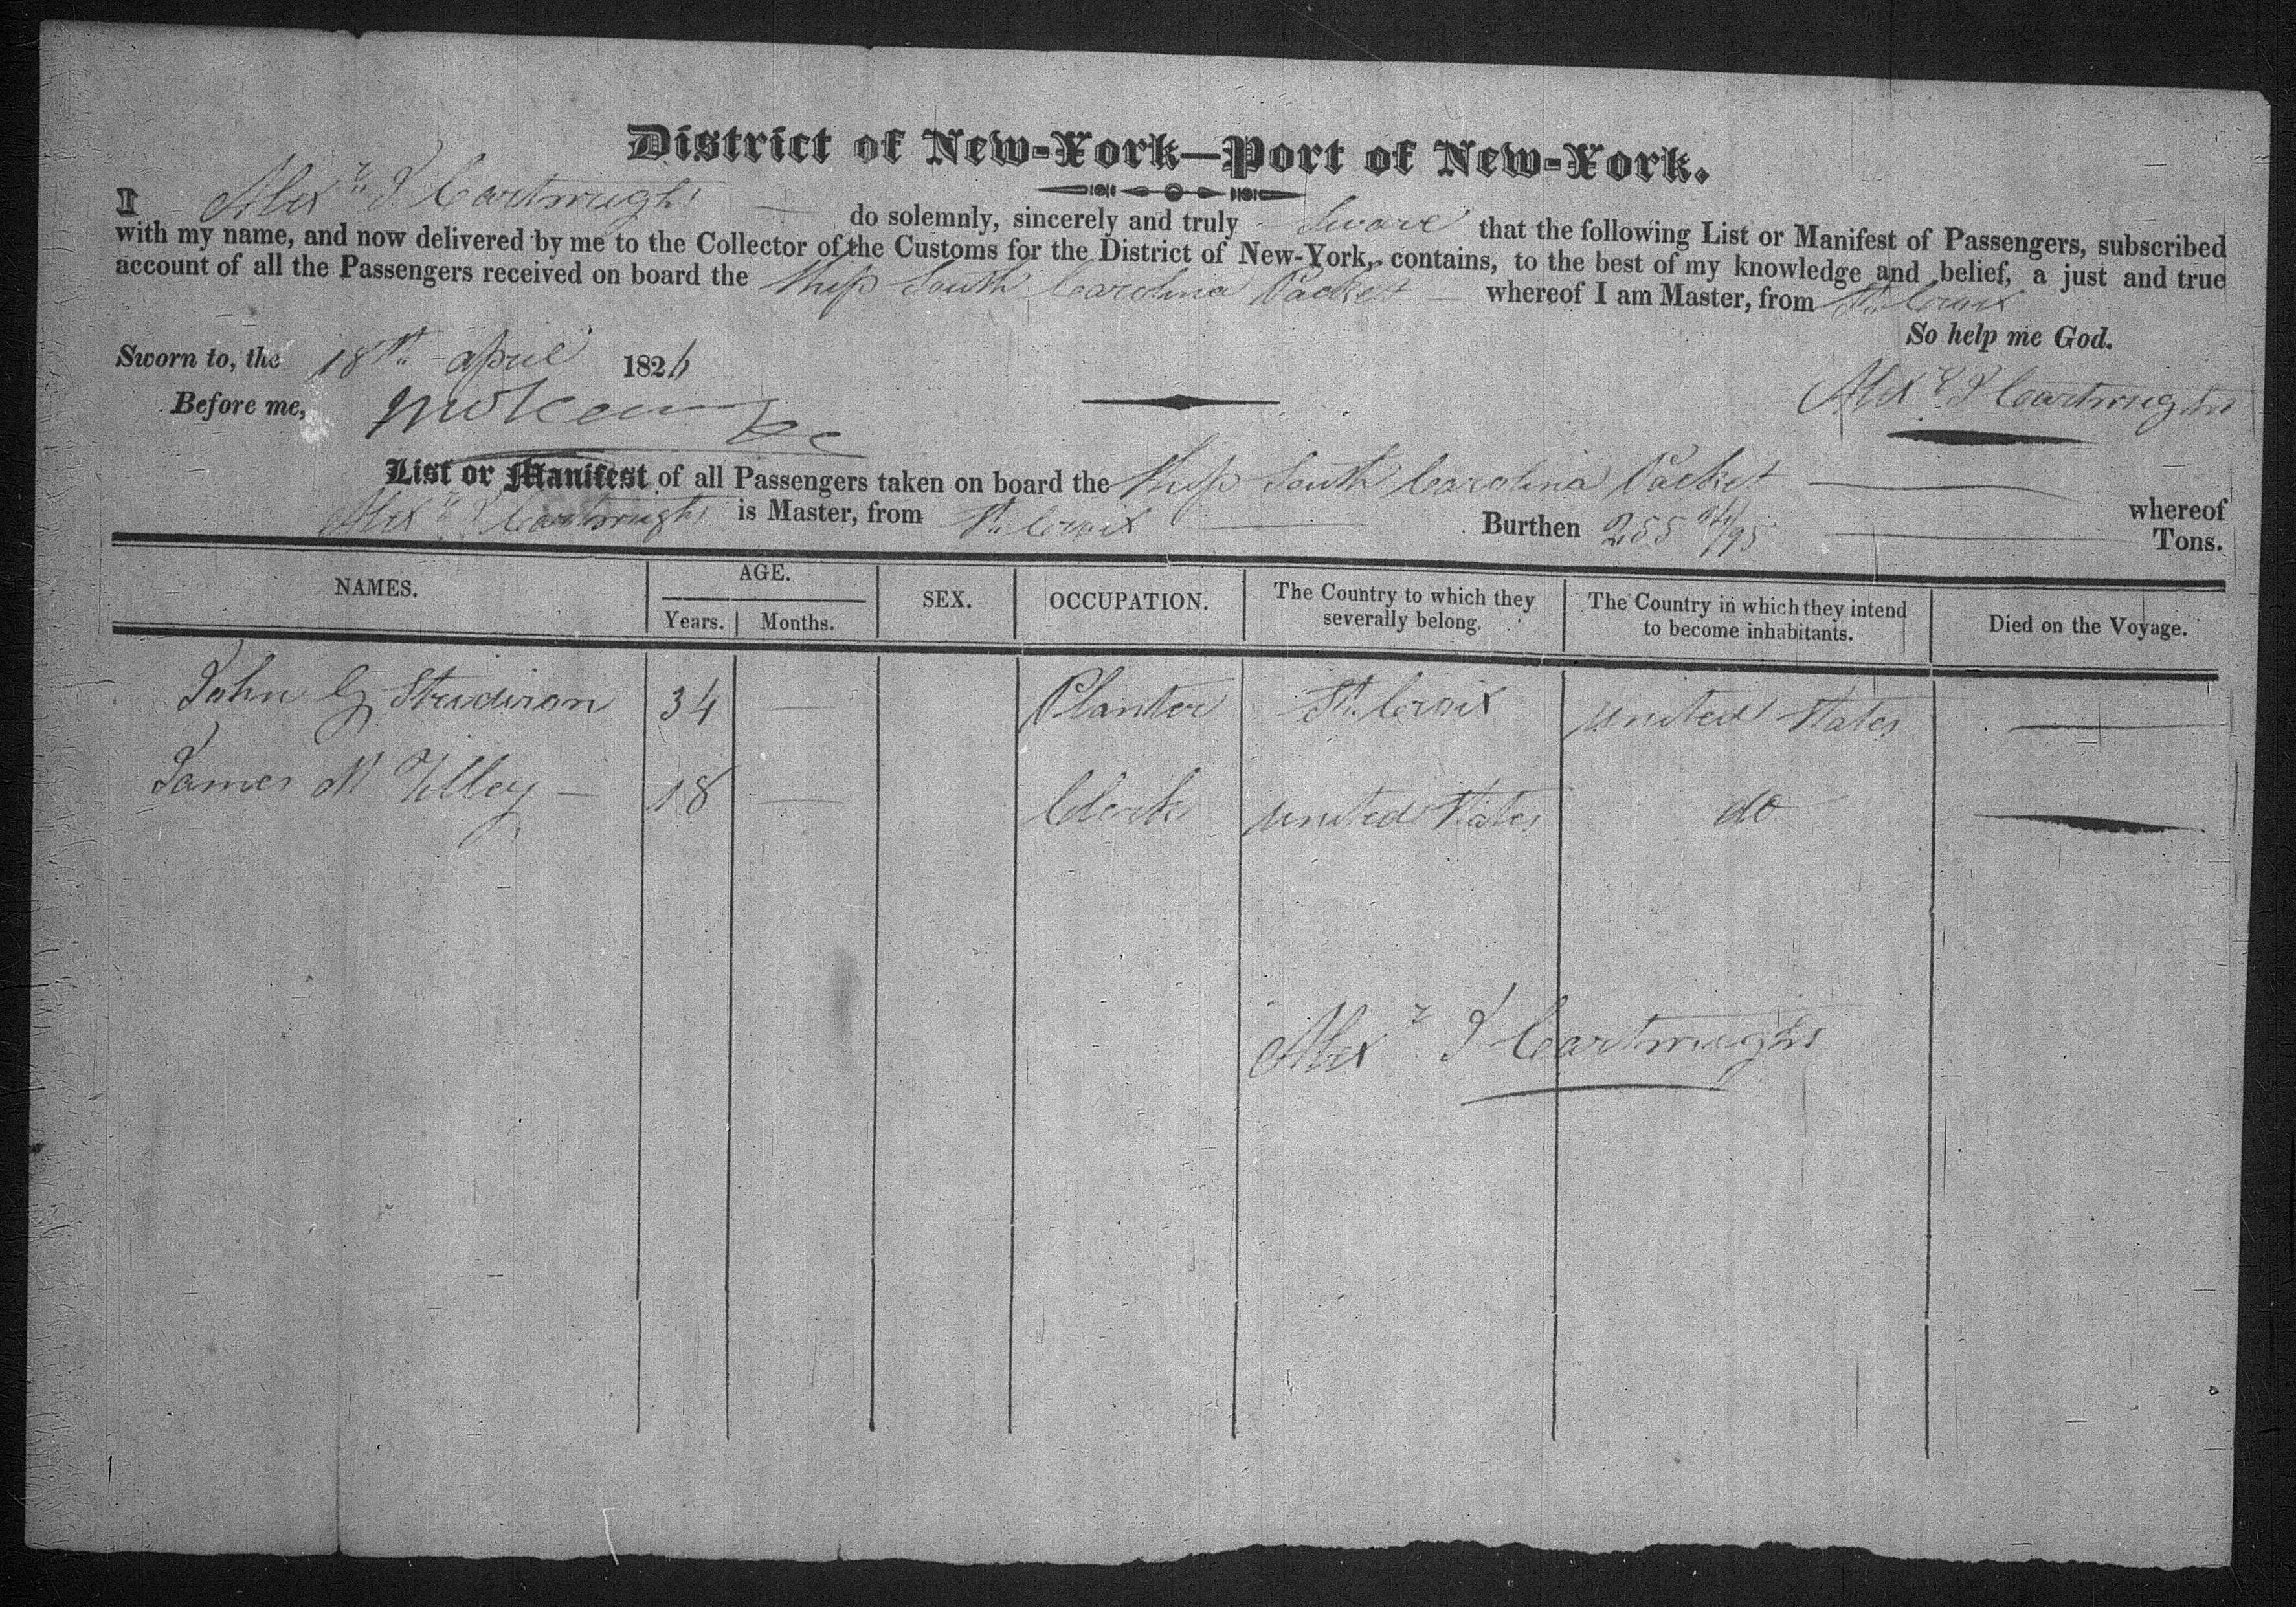 District of New-York—Port of New-York.
I Alexr J Cartwright do solemnly, sincerely and truly Swore that the following List or Manifest of Passengers, subscribed
with my name, and now delivered by me to the Collector of the Customs for the District of New-York, contains, to the best of my knowledge and belief, a just and true
account of all the Passengers received on board the Ship South Carolina Packet whereof I am Master, from St. Croix
So help me God.
Sworn to, the 18th april 1826
Alexr J Cartwright
Before me,
List or Manifest of all Passengers taken on board the Ship South Carolina Packet whereof
Alexr J Cartwright is Master, from St. Croix Burthen 255 /95 Tons.
NAMES. AGE. SEX. OCCUPATION. The Country to which they severally belong. The Country in which they intend to become inhabitants. Died on the Voyage.
Years. Months.
John G Stridiron 34 — Planter St. Croix united States —
James M Tilley — 18 — Clerk united States do —
Alexr J Cartwright